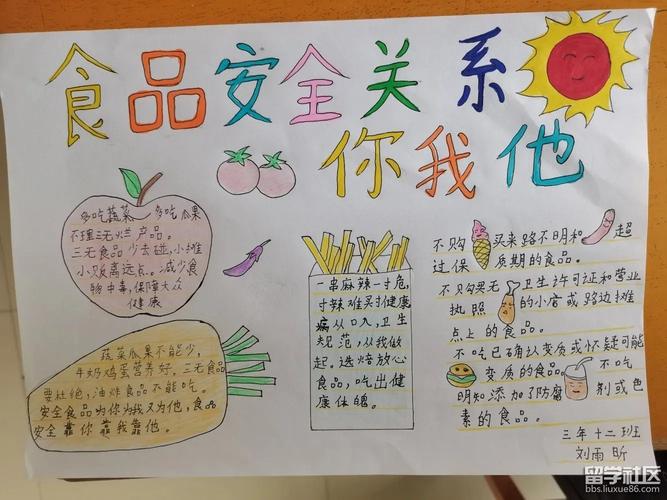 食品安全关系
你我他
多吃蔬菜 多吃瓜果
不理三无烂产品。
三无食品少去碰,小摊
小贩离远点。减少食
物中毒,保障大众
健康
蔬菜瓜果不能少,
牛奶鸡蛋营养好。三无食品
要杜绝,油炸食品不能吃。
安全食品为你为我又为他,食品
安全靠你靠我靠他。
一串麻辣一寸危,
寸辣难买寸健康
病从口入,卫生
规范,从我做
起。选择放心
食品,吃出健
康体魄。
不购买来路不明和超
过保质期的食品。
不购买无卫生许可证和营业
执照的小店或路边摊
点上的食品。
不吃已确认变质或怀疑可能
变质的食品 不吃
明知添加了防腐剂或色
素的食品。
三年十二班
刘雨昕
留学社区
bbs.liuxue86.com